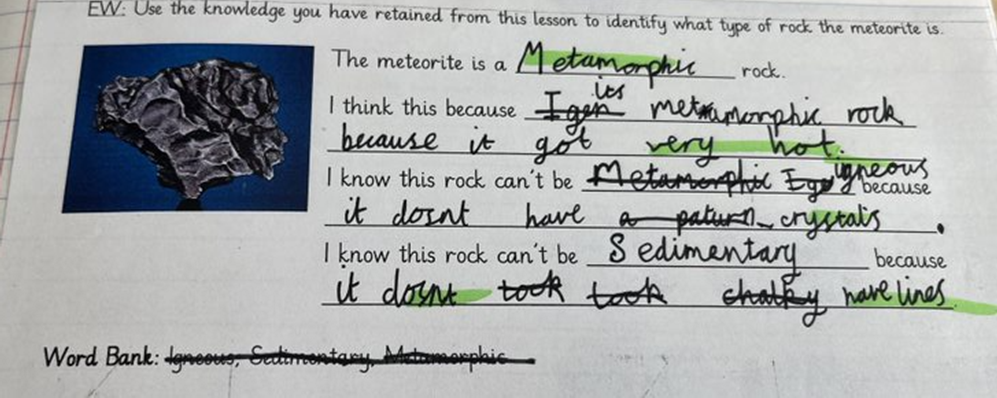 EW: Use the knowledge you have retained from this lesson to identify what type of rock the meteorite is.
The meteorite is a Metamorphic rock.
I think this because Igen its metamorphic rock
because it got very hot.
I know this rock can't be Metamorphic Ign igneous because
it dosnt have a paturn crystals.
I know this rock can't be Sedimentary because
it dosnt took took chalky have lines
Word Bank: Igneous, Sedimentary, Metamorphic